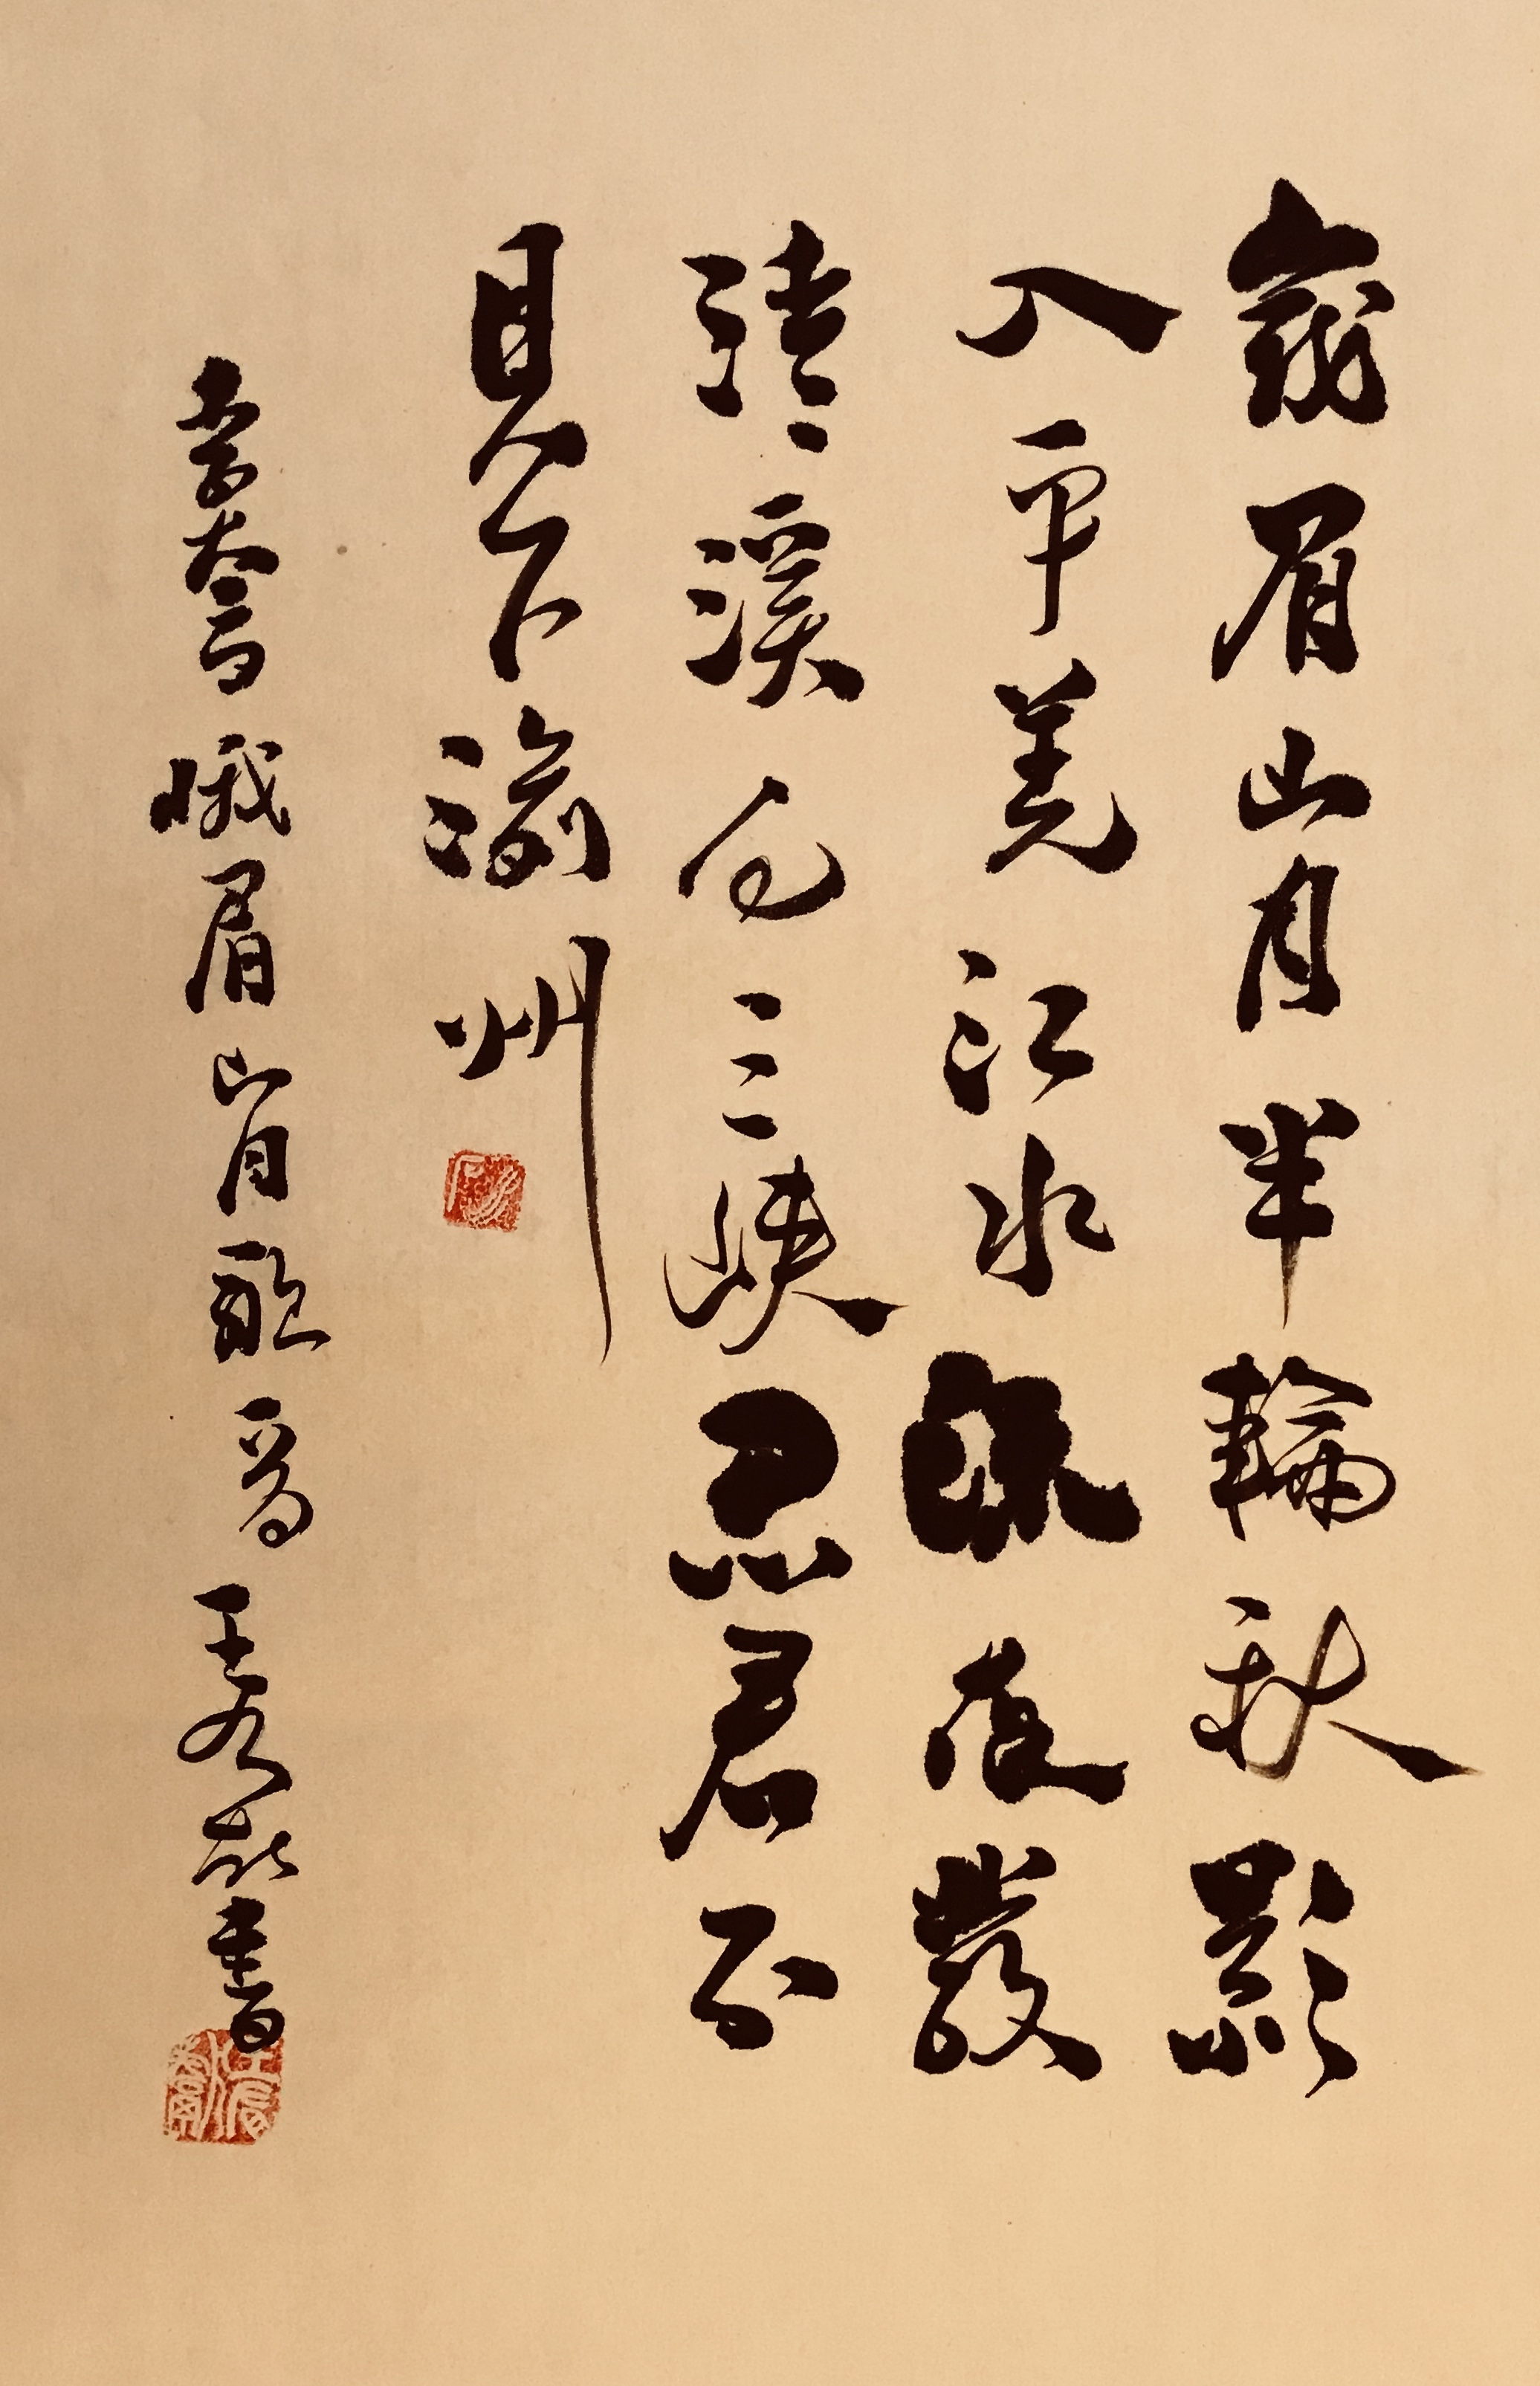 峩眉山月半輪秋影
入平羌江水流夜發
清溪向三峽思君不
見下渝州
李太白峨眉山月歌 書